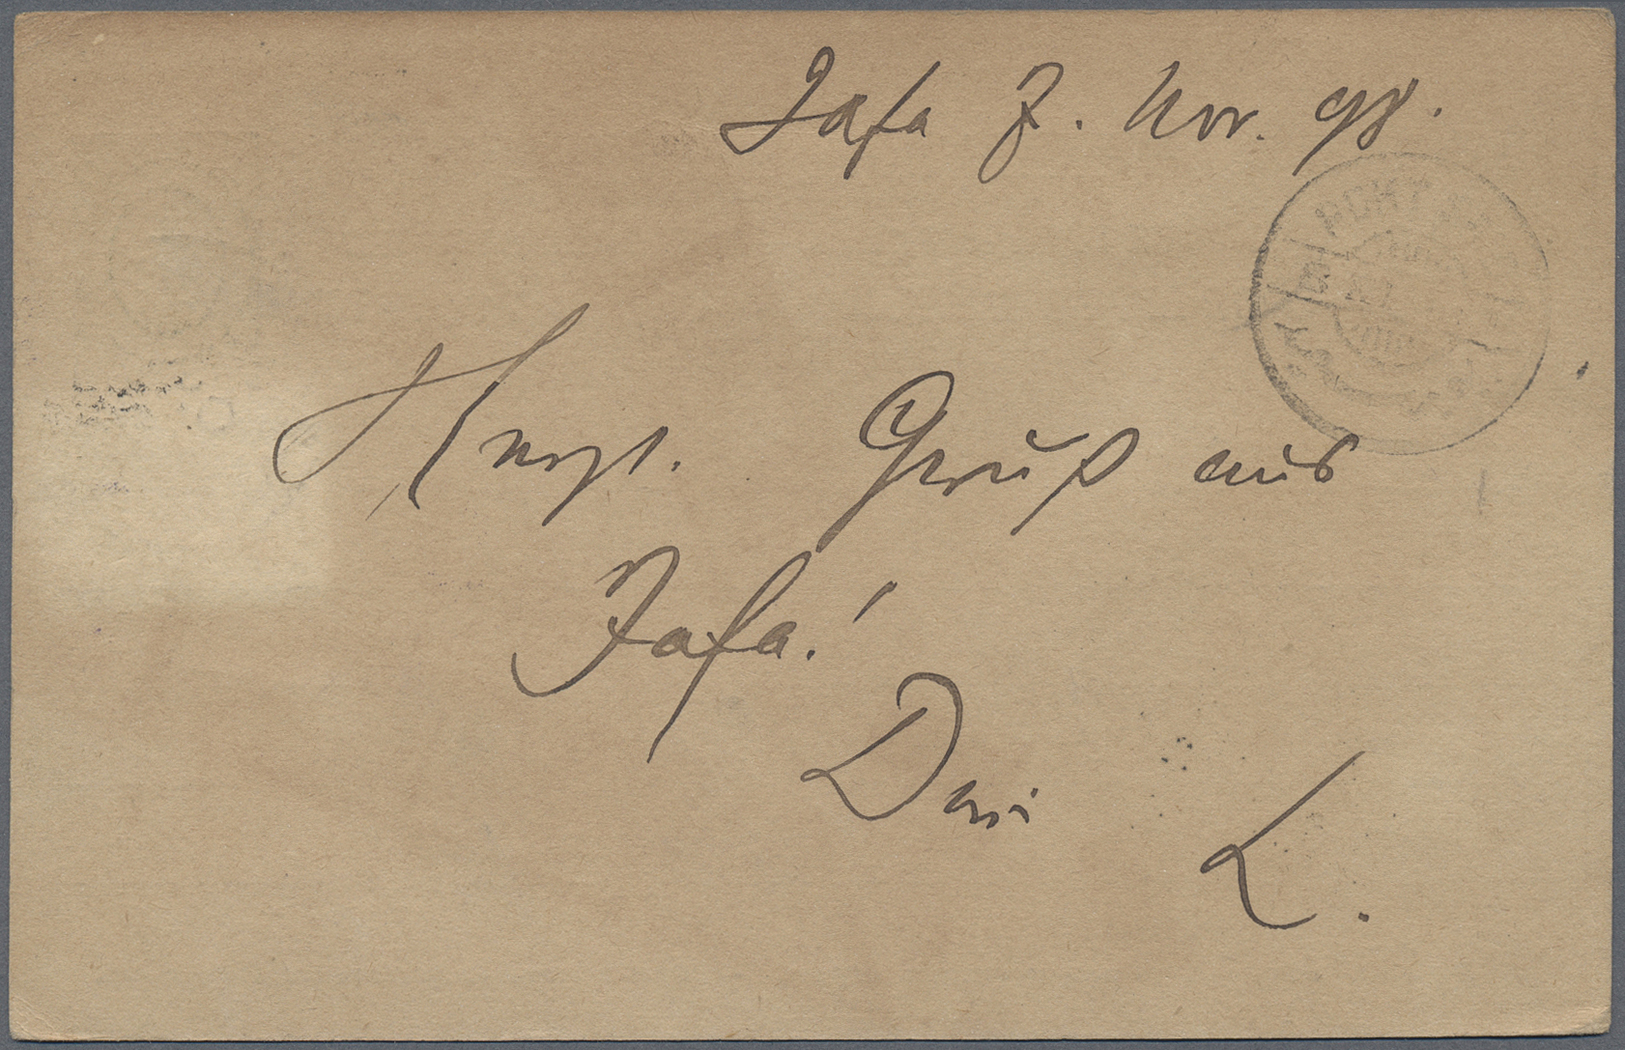 Jafa 7. Nov. 98.
Herzl. Gruß aus
Jafa!
Dein L.